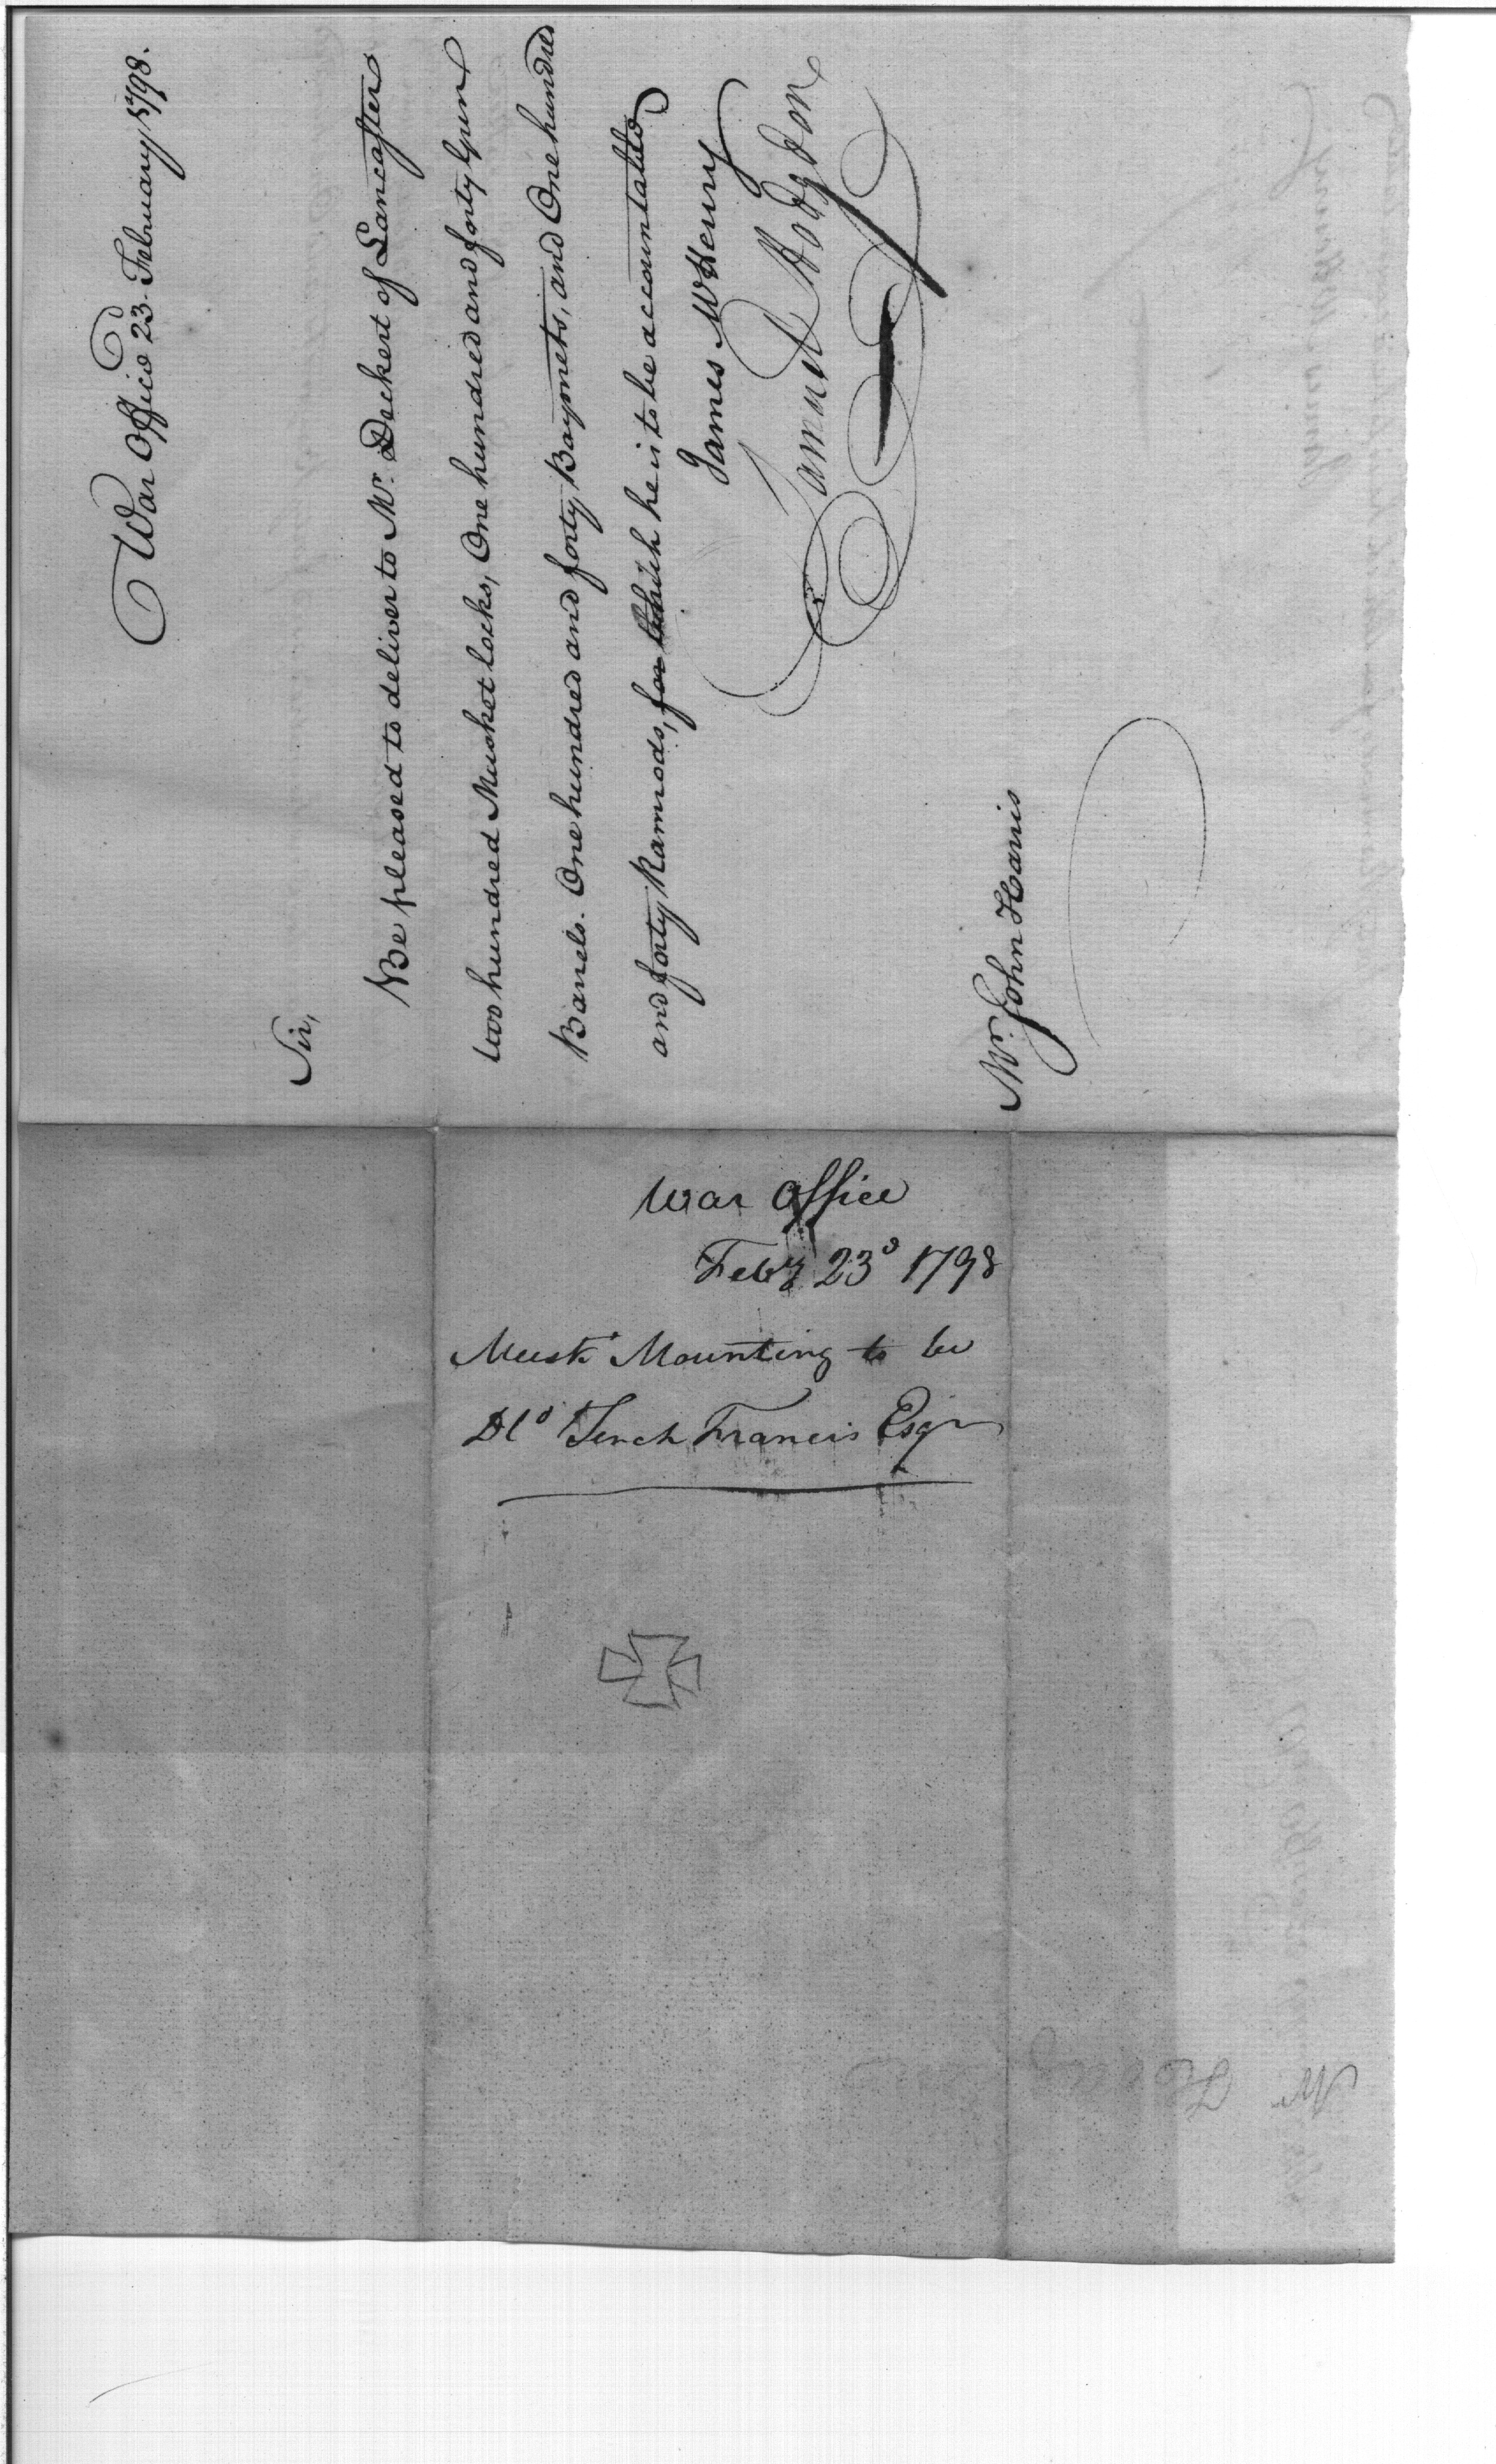 War Office 23. February 1798.
Sir,
Be pleased to deliver to Mr. Deckert of Lancaster
two hundred Musket locks, One hundred and forty Gun
Barrels. One hundred and forty Bayonets, and One hundred
and forty Ramrods, for which he is to be accountable
James McHenry
Samuel Hodgdon
Mr. John Harris
War Office
Feby 23d 1798
Muskt Mounting to be
Dld Tench Francis Esqr